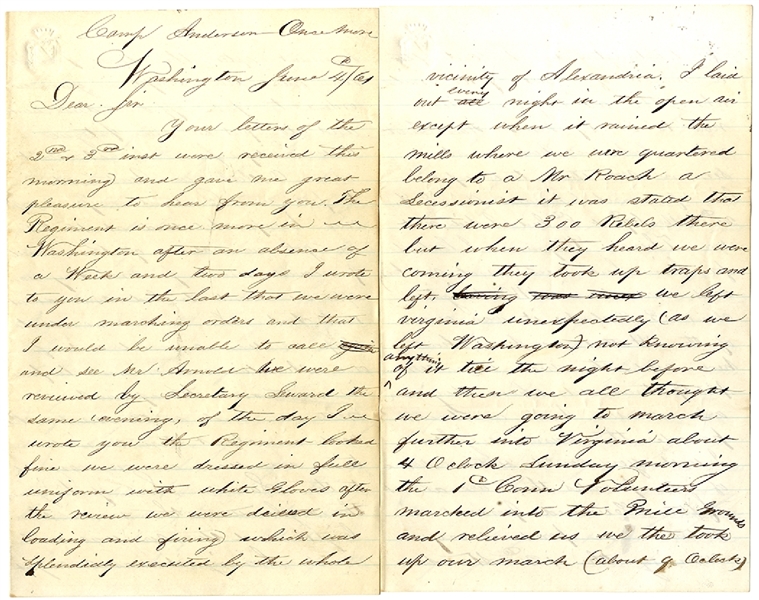 Camp Anderson Once more
Washington June 4th/61
Dear Sir
Your letters of the
2nd & 3rd inst were received this
morning and gave me great
pleasure to hear from you. The
Regiment is once more in
Washington after an absence of
a Week and two days I wrote
to you in the last that we were
under marching orders and that
I would be unable to call
and see Mr Arnold We were
reviewed by Secretary Seward the
same evening, of the day I
wrote you the Regiment looked
fine we were dressed in full
uniform with white Gloves after
the review we were drilled in
loading and firing which was
splendidly executed by the whole
vicinity of Alexandria. I laid
out all every night in the open air
except when it rained the
mills where we were quartered
belong to a Mr Roach a
Secessionist it was stated that
there were 300 Rebels there
but when they heard we were
coming they took up traps and
left. having was once we left
virginia unexpectedly (as we
left Washington) not knowing
anything of it till the night before
and then we all thought
we were going to march
further into Virginia about
4 Oclock Sunday morning
the 1st Conn Volunteers
marched into the Mill Grounds
and relieved us we the took
up our march (about 9 Oclock)